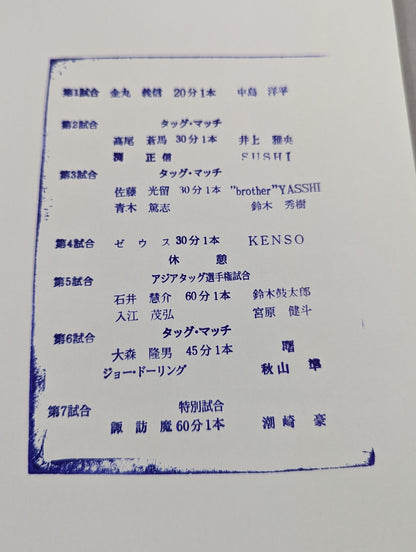 第1試合 金丸 義信 20分1本 中島 洋平
第2試合 タッグ・マッチ
高尾 蒼馬 30分1本 井上 雅央
渕 正信 SUSHI
第3試合 タッグ・マッチ
佐藤 光留 30分1本 "brother"YASSHI
青木 篤志 鈴木 秀樹
第4試合 ゼウス 30分1本 KENSO
休憩
第5試合 アジアタッグ選手権試合
石井 慧介 60分1本 鈴木鼓太郎
入江 茂弘 宮原 健斗
第6試合 タッグ・マッチ
大森 隆男 45分1本 曙
ジョー・ドーリング 秋山 準
第7試合 特別試合
諏訪魔 60分1本 潮崎 豪